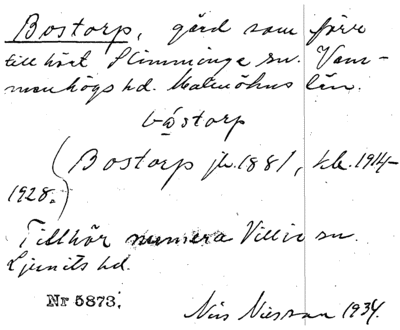 Bostorp, gård som förr
tillhört Slimminge sn. Vem-
menhögs hd. Malmöhus län.
båstorp
(Bostorp jb. 1881, kk. 1914-
1928.)
Tillhör numera Villie sn.
Ljunits hd.
Nr 5873.
Nils Nilsson 1934.